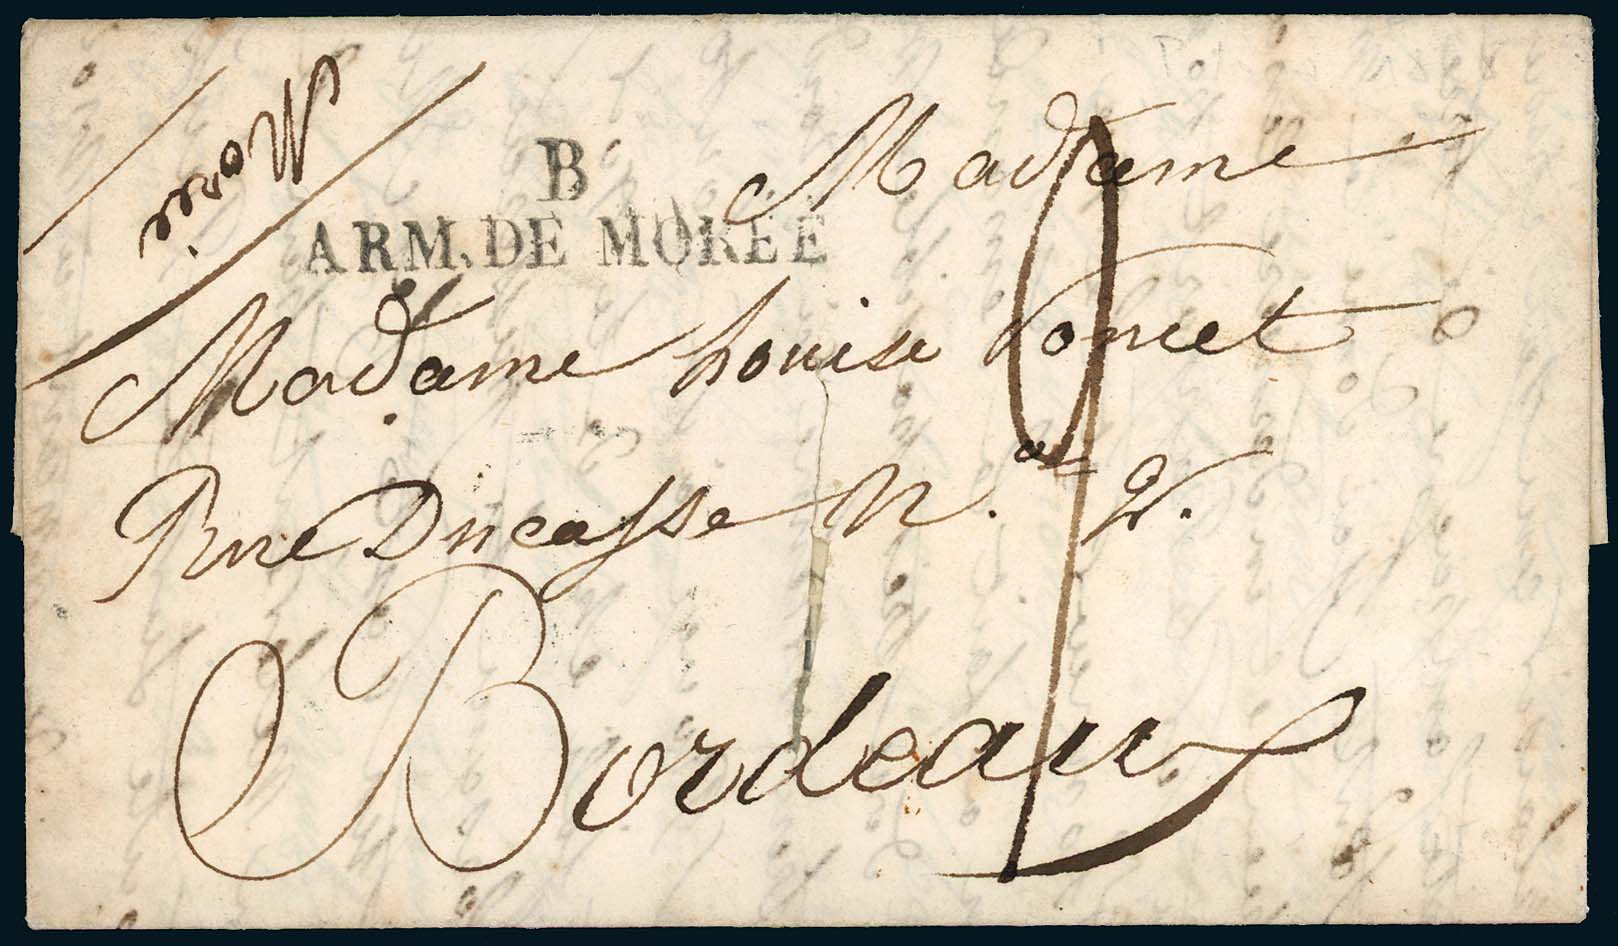 Morée
B
ARM. DE MORÉE
Madame
Madame Louise Poncet
Rue Ducasse N.o 2.
Bordeaux